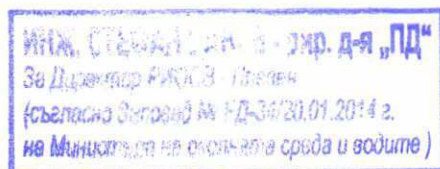 ИНЖ. СТЕФАН - дир. д-я „ПД“
За Директор РИОСВ - Плевен
(съгласно Заповед № РД-34/20.01.2014 г.
на Министъра на околната среда и водите )